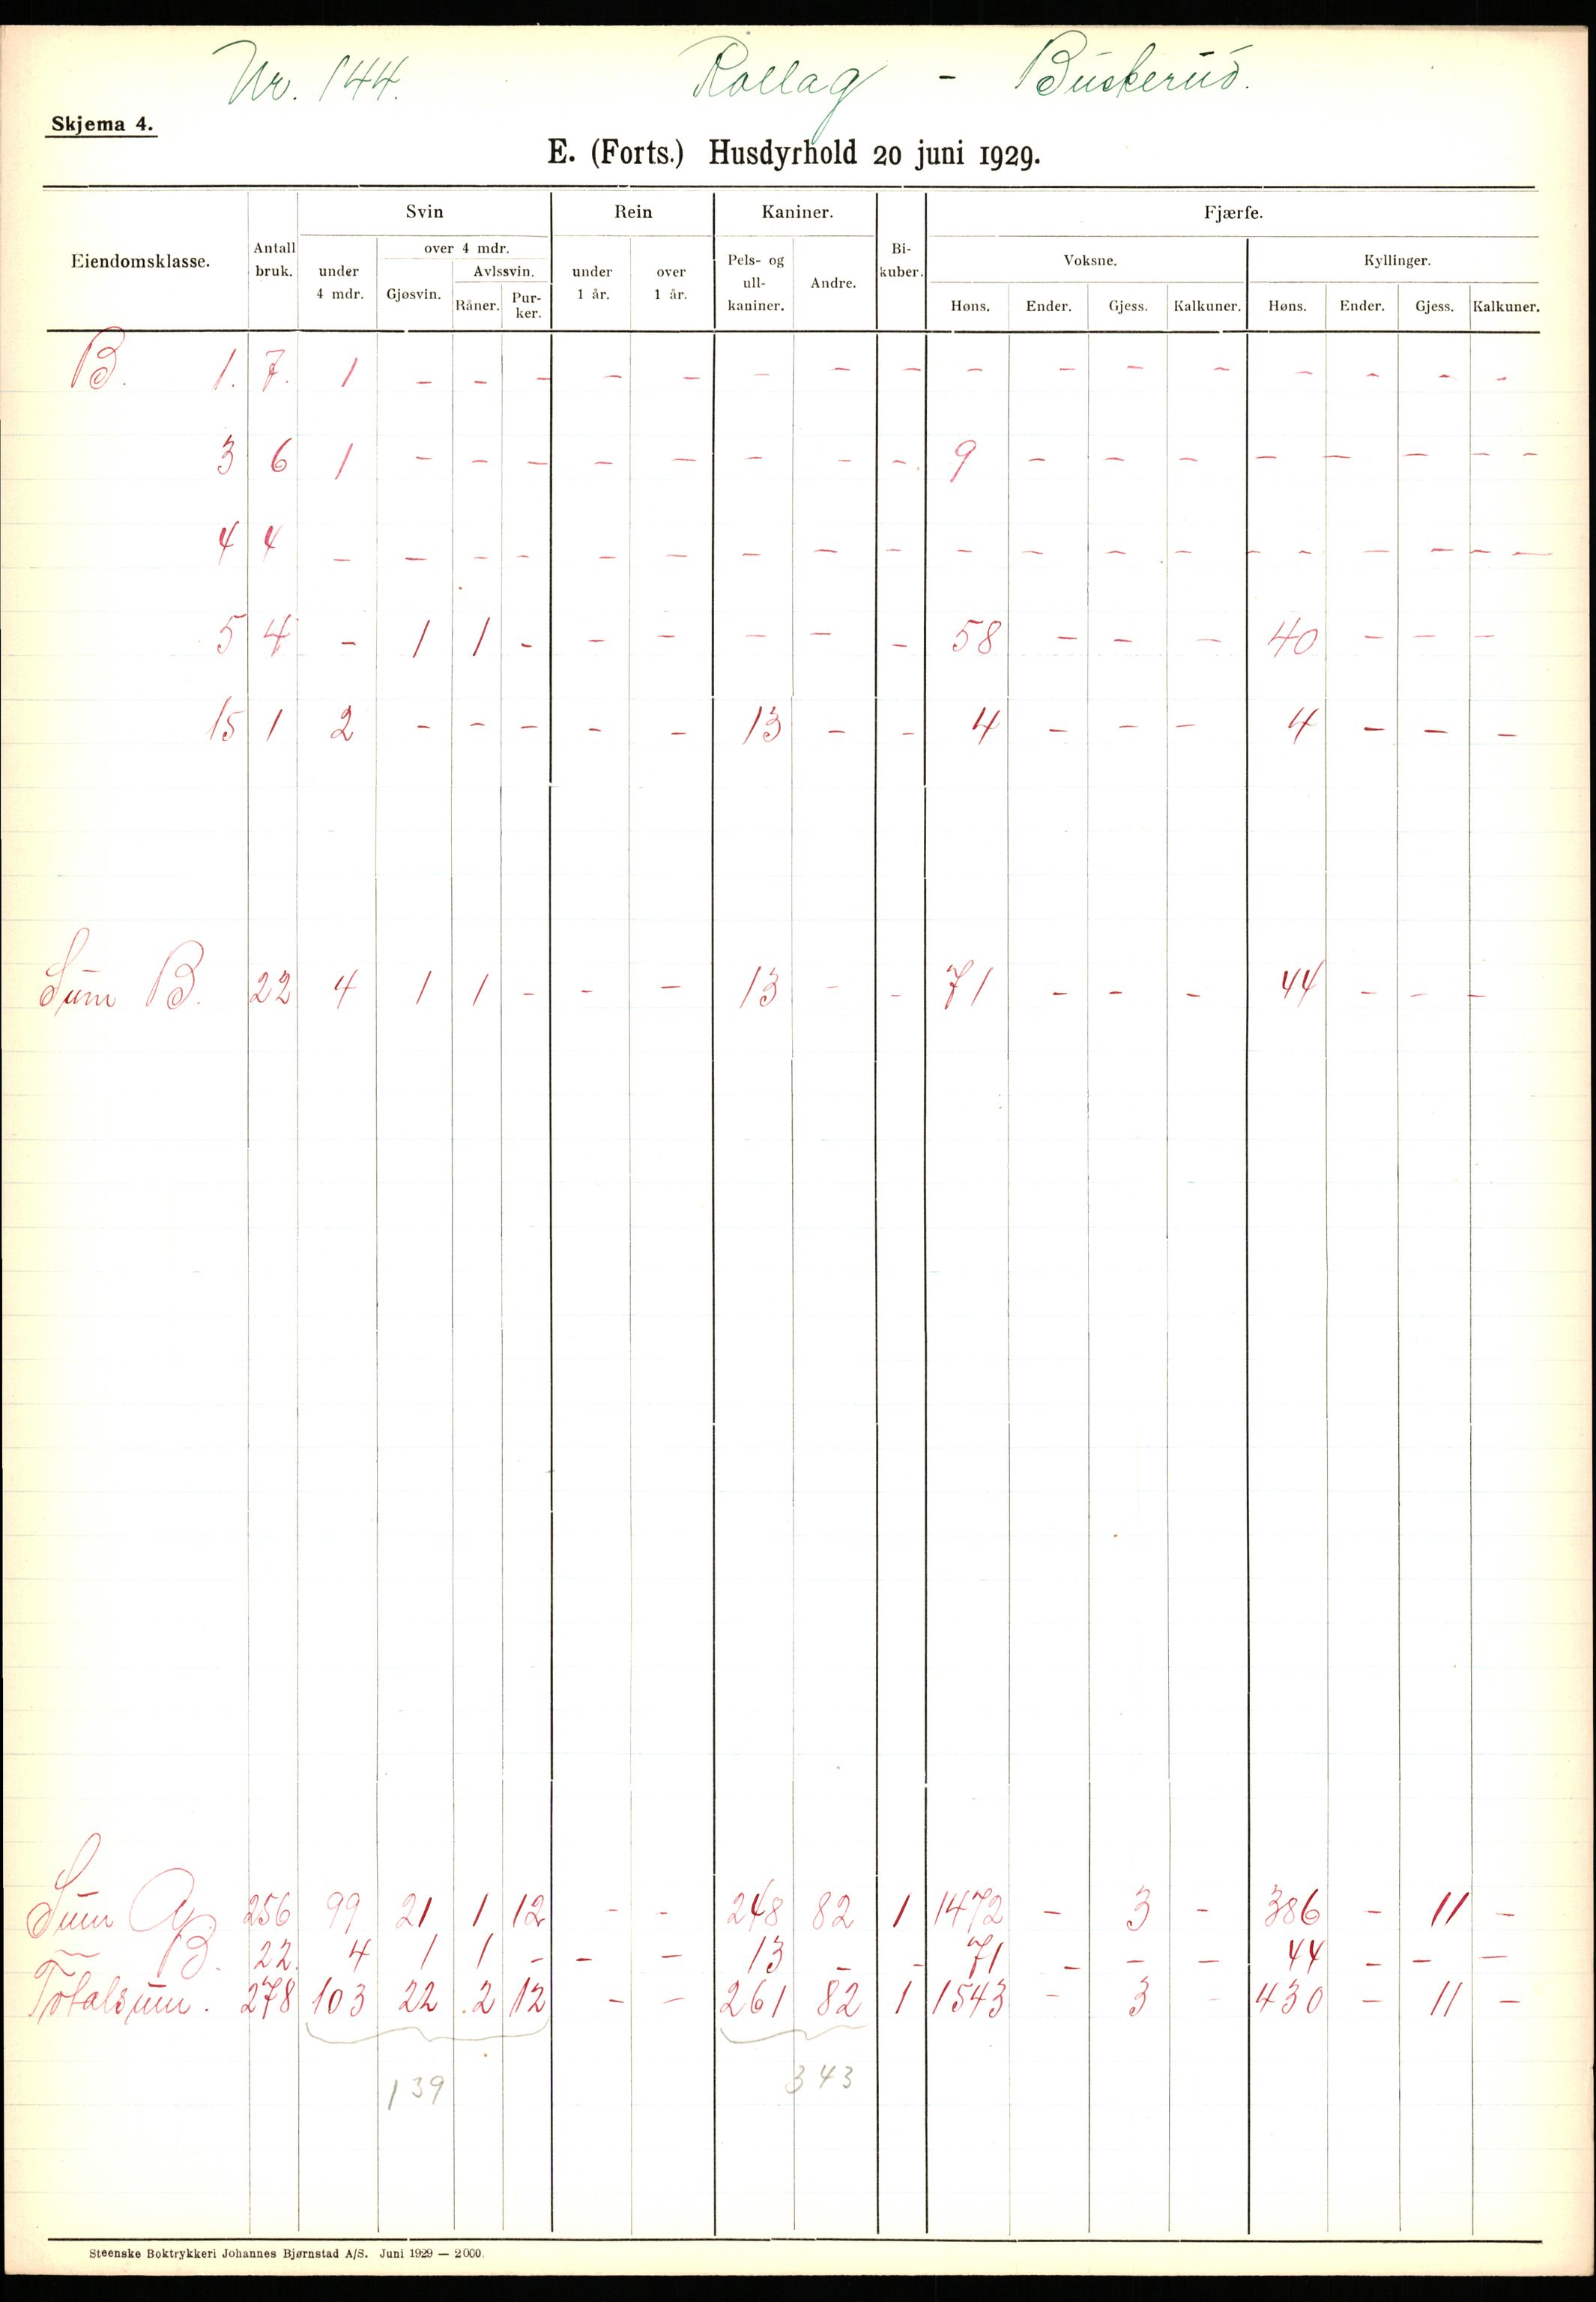 Nr. 144. Rollag - Buskerud.
Skjema 4.
E. (Forts.) Husdyrhold 20 juni 1929.
Eiendomsklasse. Antall bruk. Svin Rein Kaniner. Bi-kuber. Fjærfe.
under 4 mdr. over 4 mdr. under 1 år. over 1 år. Pels- og ull-kaniner. Andre. Voksne. Kyllinger.
Gjøsvin. Avlssvin.
Råner. Pur-ker. Høns. Ender. Gjess. Kalkuner. Høns. Ender. Gjess. Kalkuner.
B. 1. 7. 1 - - - - - - - - - - - - - - - -
3 6 1 - - - - - - - - 9 - - - - - - - -
4 4 - - - - - - - - - - - - - - - - - - -
5 4 - 1 1 - - - - - - 58 - - - 40 - - -
15 1 2 - - - - - 13 - - 4 - - - 4 - - -
Sum B. 22 4 1 1 - - - 13 - - 71 - - - 44 - - -
Sum A. 256 99 21 1 12 - - 248 82 1 1472 - 3 - 386 - 11 -
~ B. 22. 4 1 1 - - - 13 - - 71 - - - 44 - - -
Totalsum. 278 103 22 2 12 - - 261 82 1 1543 - 3 - 430 - 11 -
139 343
Steenske Boktrykkeri Johannes Bjørnstad A/S. Juni 1929 — 2000.